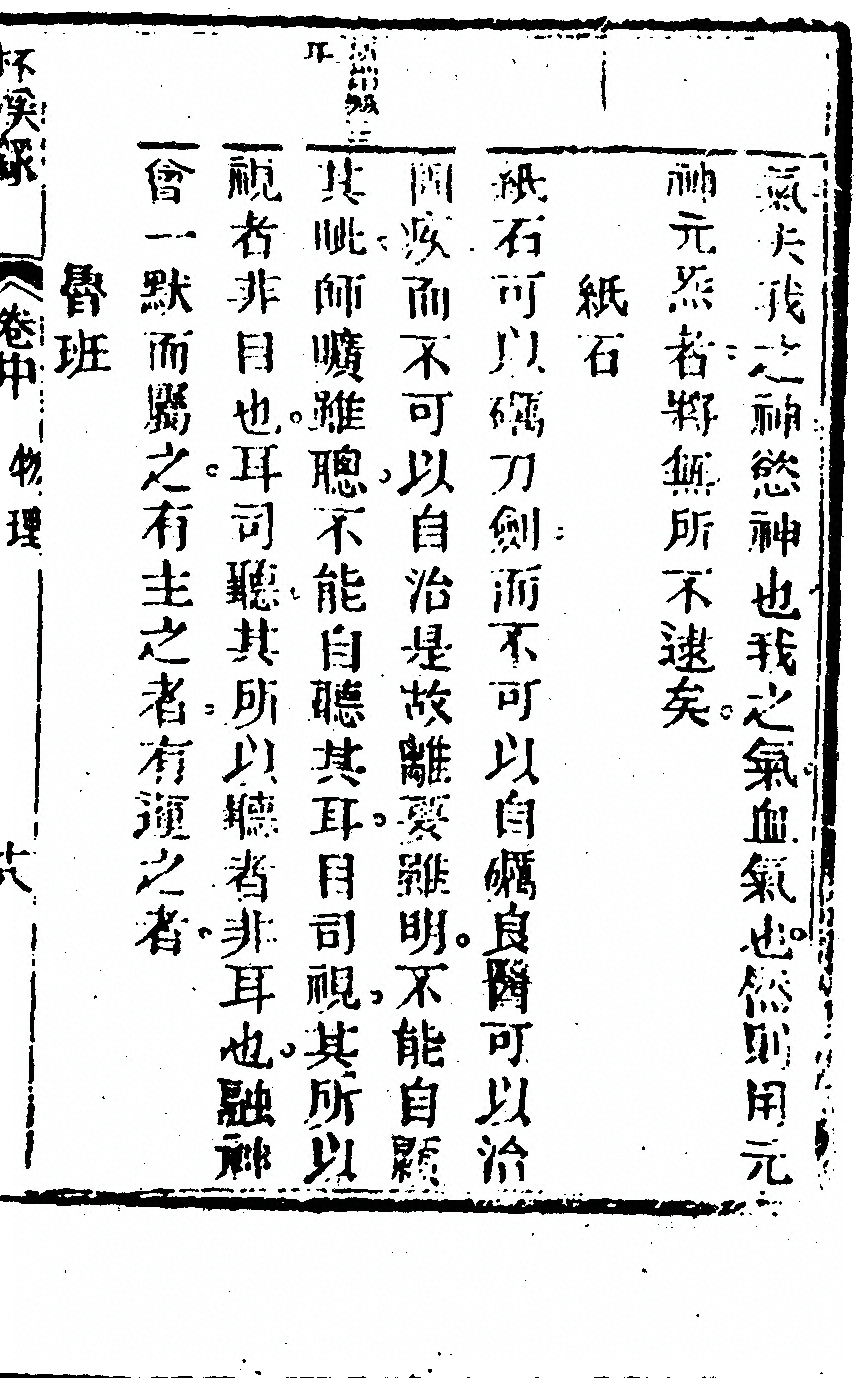 氣夫我之神慾神也我之氣。血氣也。然則用元
神元炁者。將無所不逮矣。
紙石
紙石可以礪刀劍。而不可以自礪良醫可以治
固疾而不可以自治是故離婁雖明。不能自顯
其眦。師曠雖聰。不能自聽其耳。目司視。其所以
視者非目也。耳司聽。其所以聽者非耳也。融神
會一默而屬之。有主之者。有運之者。
魯班
杯溪錄
卷中
物理